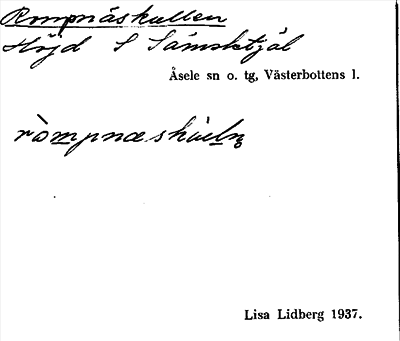 Rompnäskullen
Höjd S Sämsktjäl
Åsele sn o. tg, Västerbottens l.
ròmpnæskùeln̥
Lisa Lidberg 1937.